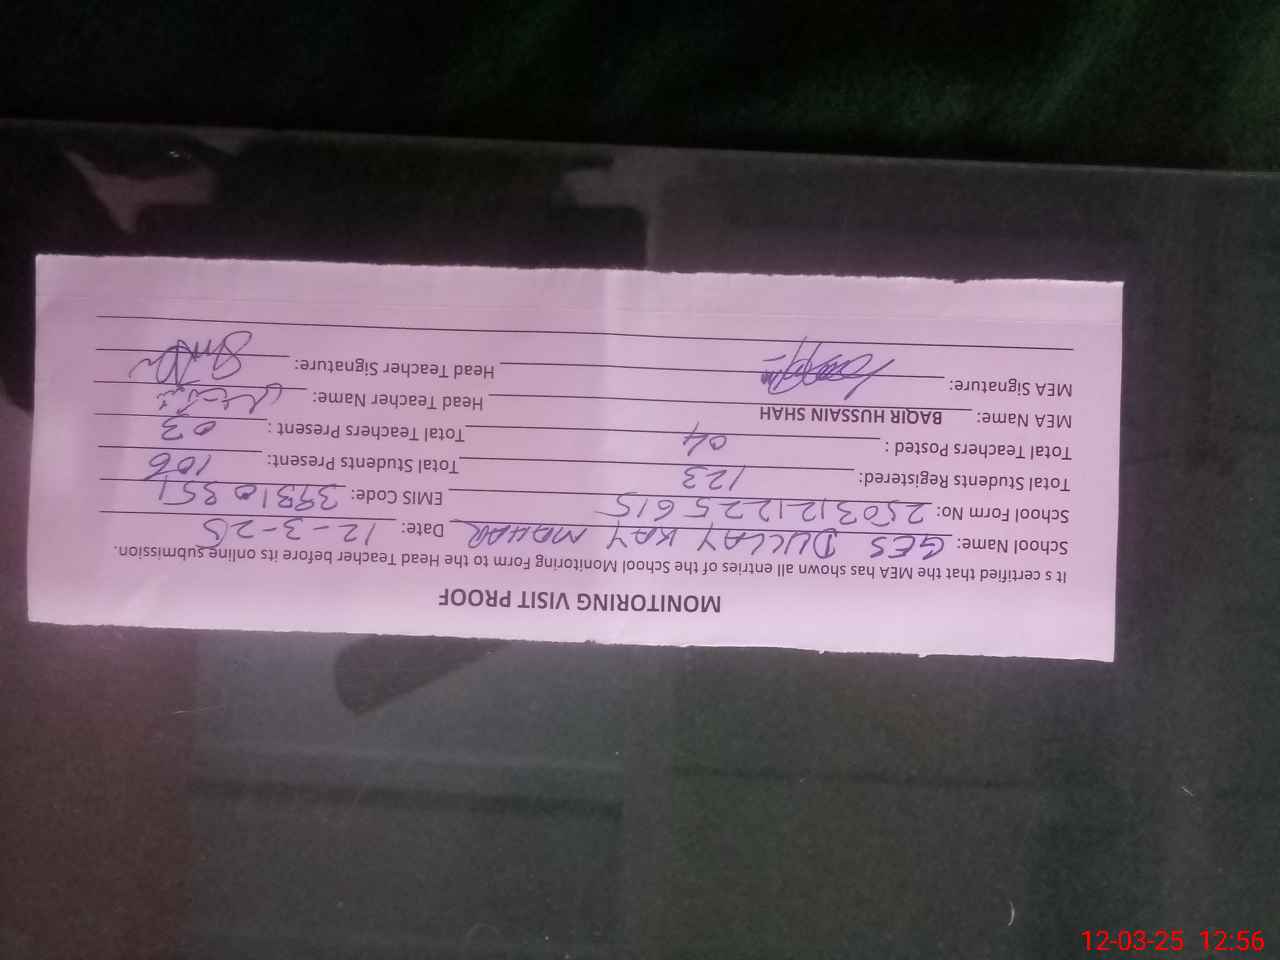 MONITORING VISIT PROOF
It s certified that the MEA has shown all entries of the School Monitoring Form to the Head Teacher before its online submission.
School Name: GES DULLAY KAY MAHAR Date: 12-3-25
School Form No: 2503121225615 EMIS Code: 39310351
Total Students Registered: 123 Total Students Present: 106
Total Teachers Posted : 04 Total Teachers Present : 03
MEA Name: BAQIR HUSSAIN SHAH Head Teacher Name:
MEA Signature: Head Teacher Signature:
12-03-25 12:56